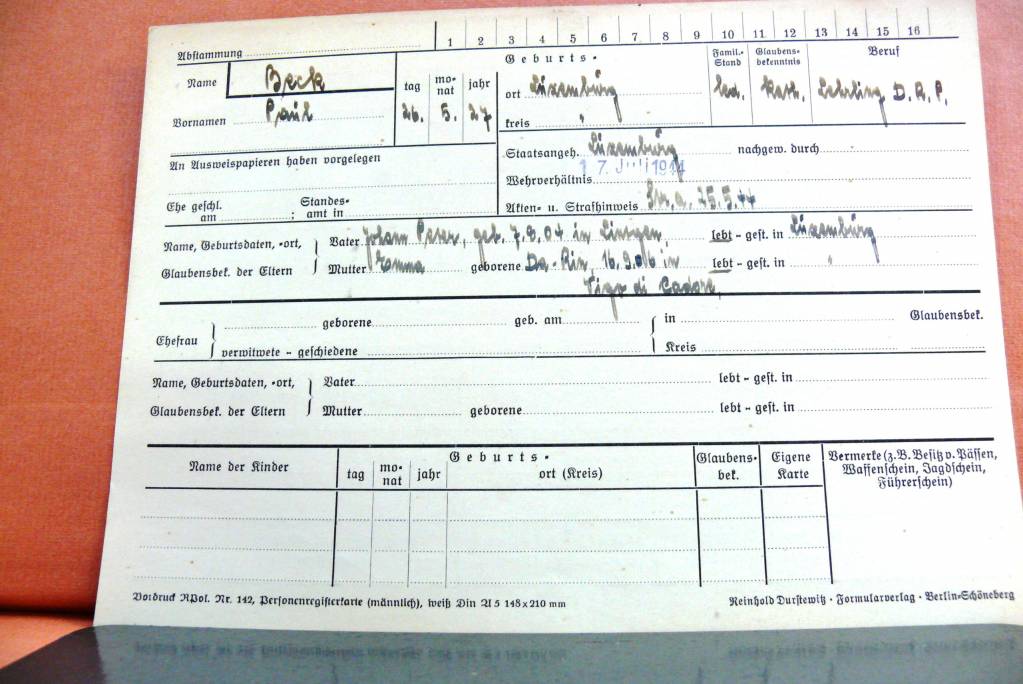 1 2 3 4 5 6 7 8 9 10 11 12 13 14 15 16
Abstammung
Geburts-
Famil.-Stand Glaubens-bekenntnis Beruf
Name Beck
tag monat jahr
ort Luxemburg led. kath. Lehrling D.R.P.
Vornamen Paul 26. 5. 27
kreis "
An Ausweispapieren haben vorgelegen
Staatsangeh. Luxemburg nachgew. durch
17. Juli 1944
Wehrverhältnis
Ehe geschl. am ; Standes-amt in
Akten- u. Strafhinweis 25.5.44
Name, Geburtsdaten, -ort, Vater Johann Peter, geb. 7.9.04 in Lintgen, lebt - gest. in Luxemburg
Glaubensbek. der Eltern Mutter Emma geborene Da-Rin, 16.9.06 in lebt - gest. in "
Vigo di Cadore,
Ehefrau geborene geb. am in Glaubensbek.
verwitwete - geschiedene Kreis
Name, Geburtsdaten, -ort, Vater lebt - gest. in
Glaubensbek. der Eltern Mutter geborene lebt - gest. in
Name der Kinder
Geburts-
tag monat jahr ort (Kreis)
Glaubens-bek.
Eigene Karte
Vermerke (z. B. Besitz v. Pässen,
Waffenschein, Jagdschein,
Führerschein)
Vordruck RPol. Nr. 142, Personenregisterkarte (männlich), weiß Din A 5 148 x 210 mm
Reinhold Durstewitz · Formularverlag · Berlin-Schöneberg